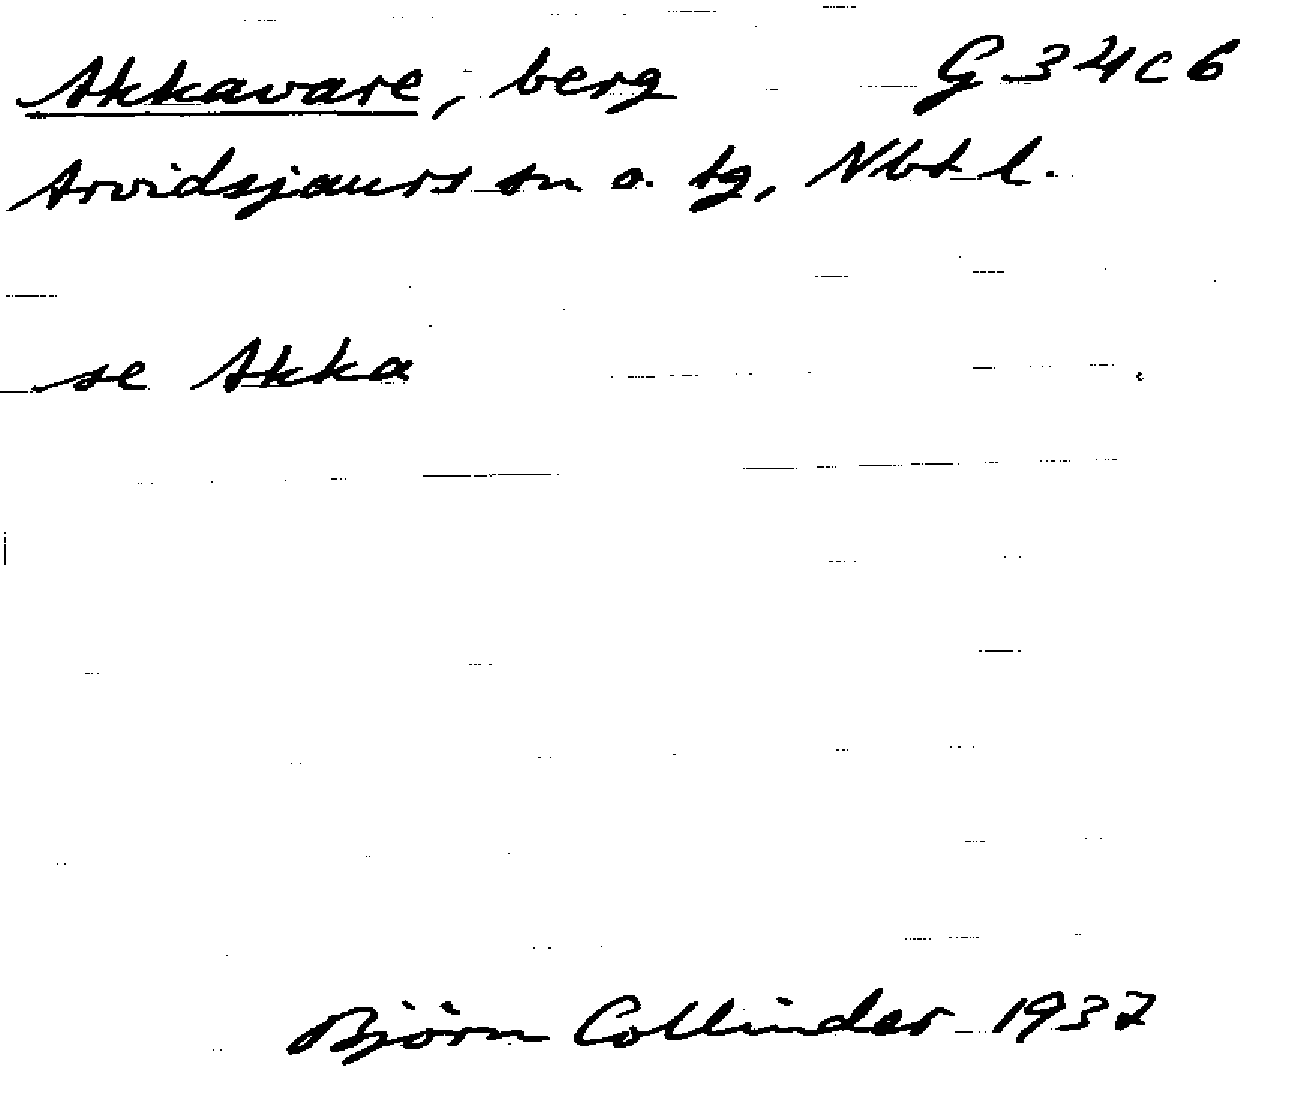 Akkavare, berg G 34 c 6
Arvidsjaurs sn o. tg, Nbt l.
se Akka
Björn Collinder 1937